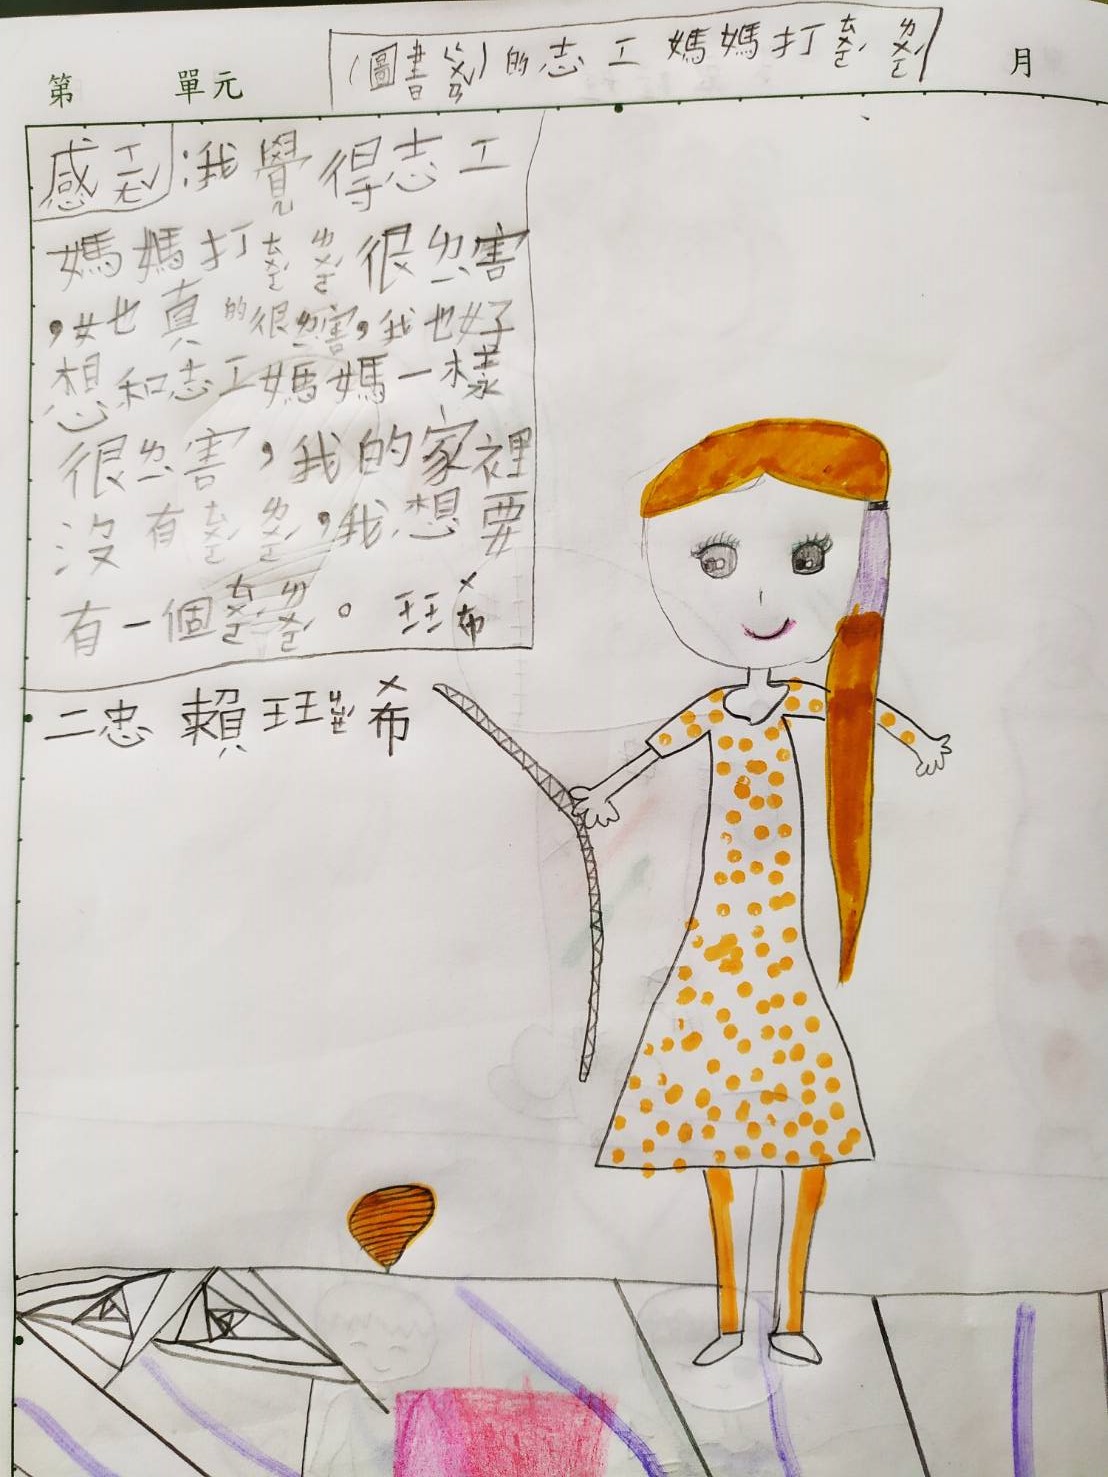 第 單元 (圖書ㄑㄩㄣ)的志工媽媽打ㄊㄨㄛˊㄌㄨㄛˊ 月
感ㄒㄧㄝˋ:我覺得志工
媽媽打ㄊㄨㄛˊㄌㄨㄛˊ很ㄌㄧˋ害
,女也真的很ㄌㄧˋ害,我也好
想和志工媽媽一樣
很ㄌㄧˋ害,我的家裡
沒有ㄊㄨㄛˊㄌㄨㄛˊ,我想要
有一個ㄊㄨㄛˊㄌㄨㄛˊ。 玨希
二忠 賴玨 希